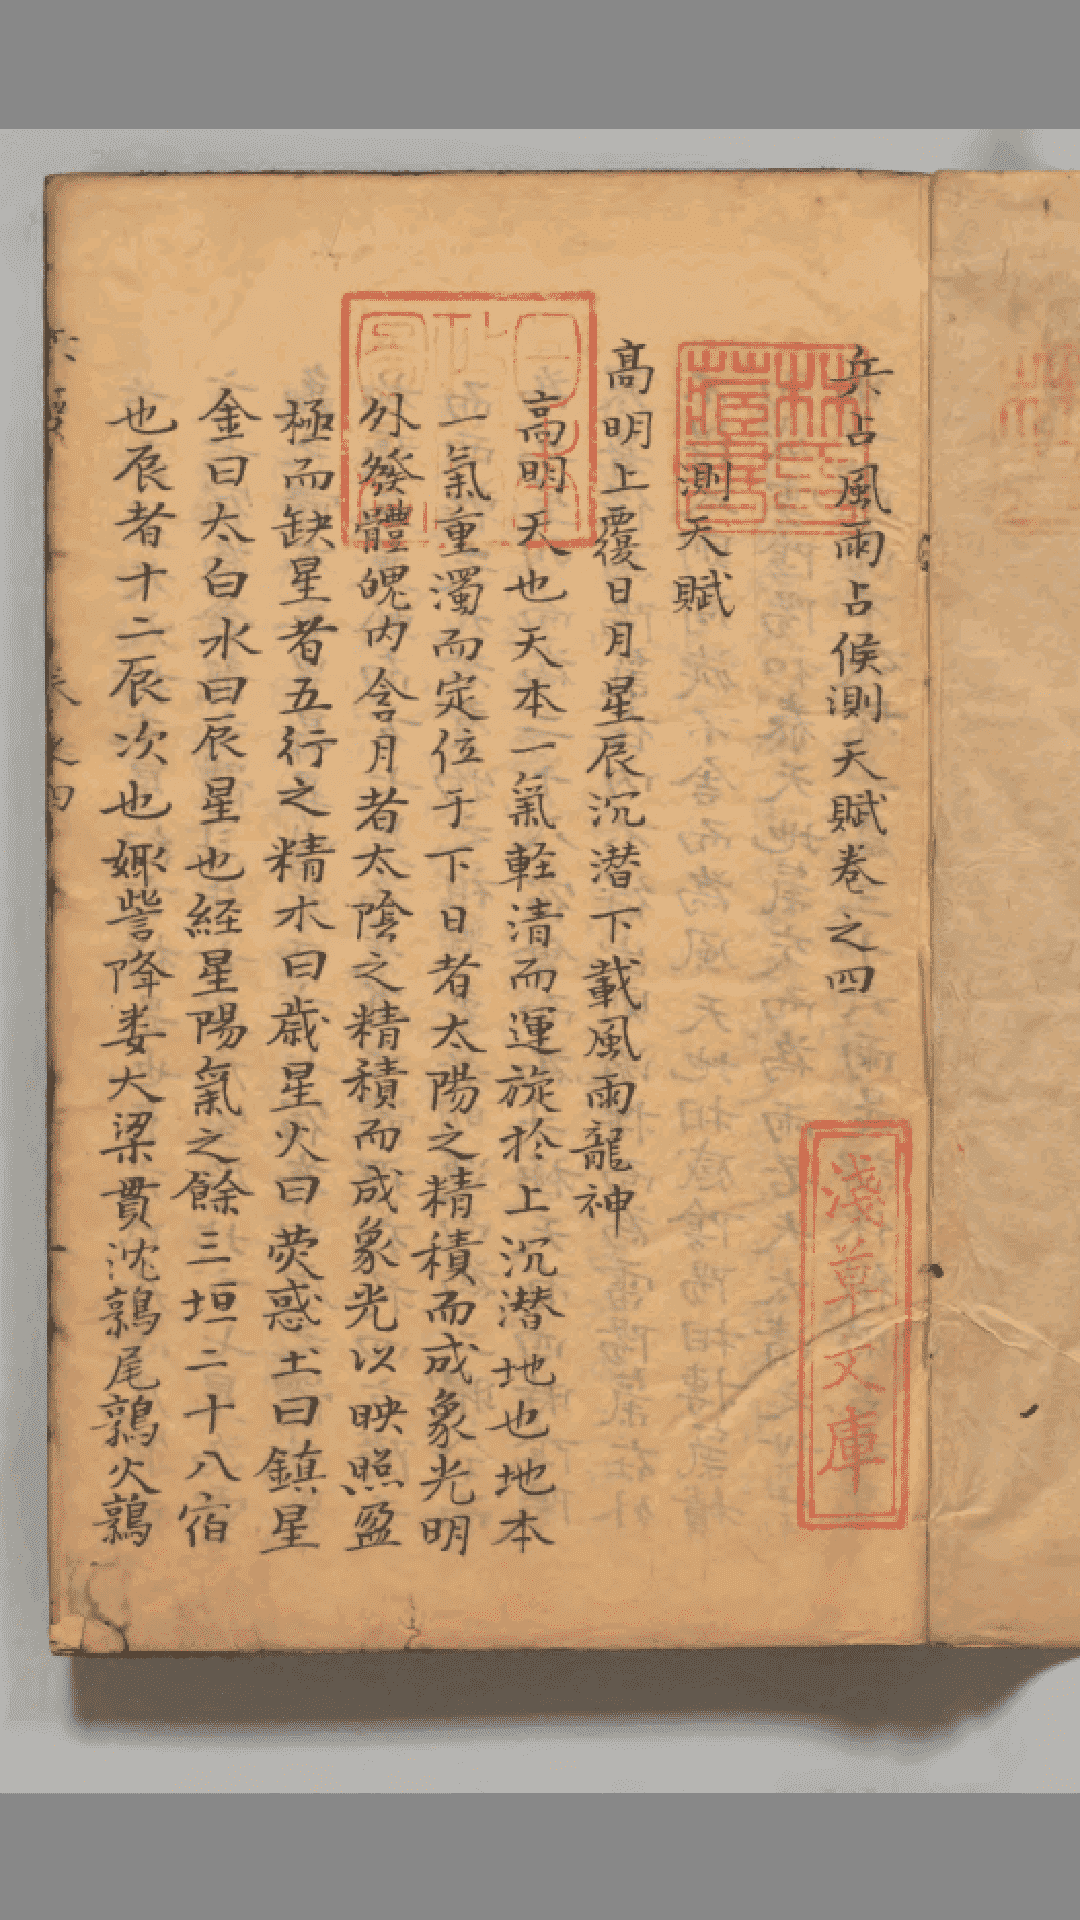 兵占風雨占候測天賦卷之四
測天賦
高明上覆日月星辰沉潜下載風雨龍神
高明天也天本一氣軽清而運旋於上沉潜地也地本
一氣重濁而定位于下日者太陽之精積而成象光明
外發體魄内含月者太陰之精積而成象光以映照盈
極而缺星者五行之精木曰歲星火曰熒惑土曰鎮星
金曰太白水曰辰星也経星陽氣之餘三垣二十八宿
也辰者十二辰次也娵訾降娄大梁貫沈鶉尾鶉火鶉
林氏藏書
淺草文庫